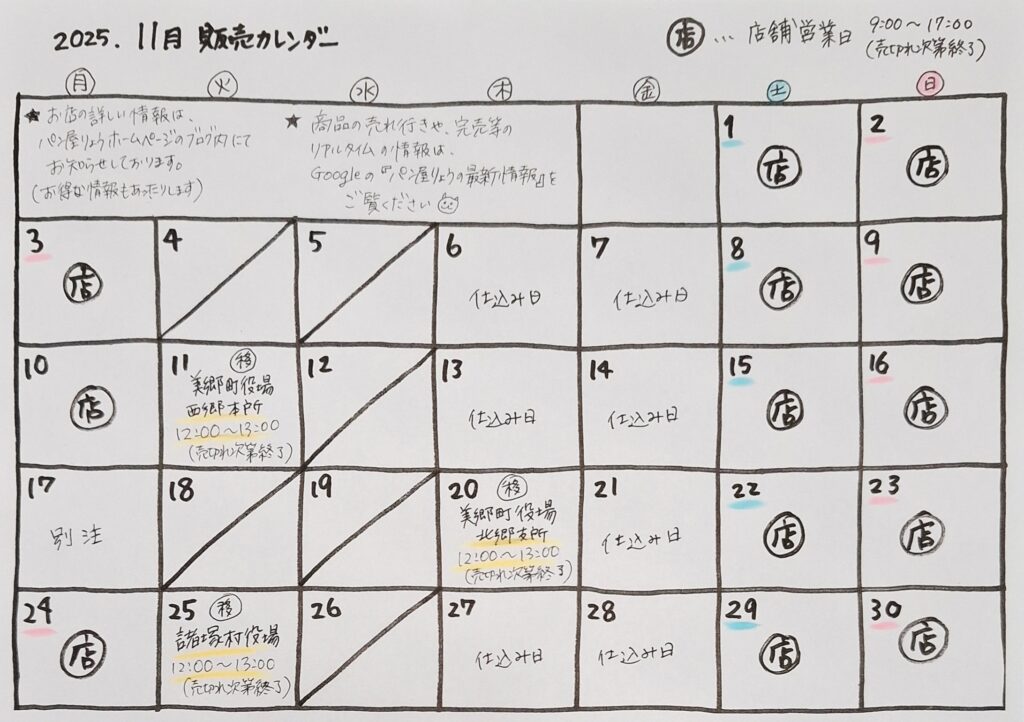 2025. 11月 販売カレンダー
店 … 店舗営業日 9:00〜17:00
(売切れ次第終了)
月 火 水 木 金 土 日
★ お店の詳しい情報は、
パン屋りょうホームページのブログ内にて
お知らせしております。
(お得な情報もあったりします)
★ 商品の売れ行きや、完売等の
リアルタイムの情報は、
Googleの『パン屋りょうの最新情報』を
ご覧ください
1
店
2
店
3
店
4
5
6
仕込み日
7
仕込み日
8
店
9
店
10
店
11 移
美郷町役場
西郷本所
12:00〜13:00
(売切れ次第終了)
12
13
仕込み日
14
仕込み日
15
店
16
店
17
別注
18
19
20 移
美郷町役場
北郷支所
12:00〜13:00
(売切れ次第終了)
21
仕込み日
22
店
23
店
24
店
25 移
諸塚村役場
12:00〜13:00
(売切れ次第終了)
26
27
仕込み日
28
仕込み日
29
店
30
店